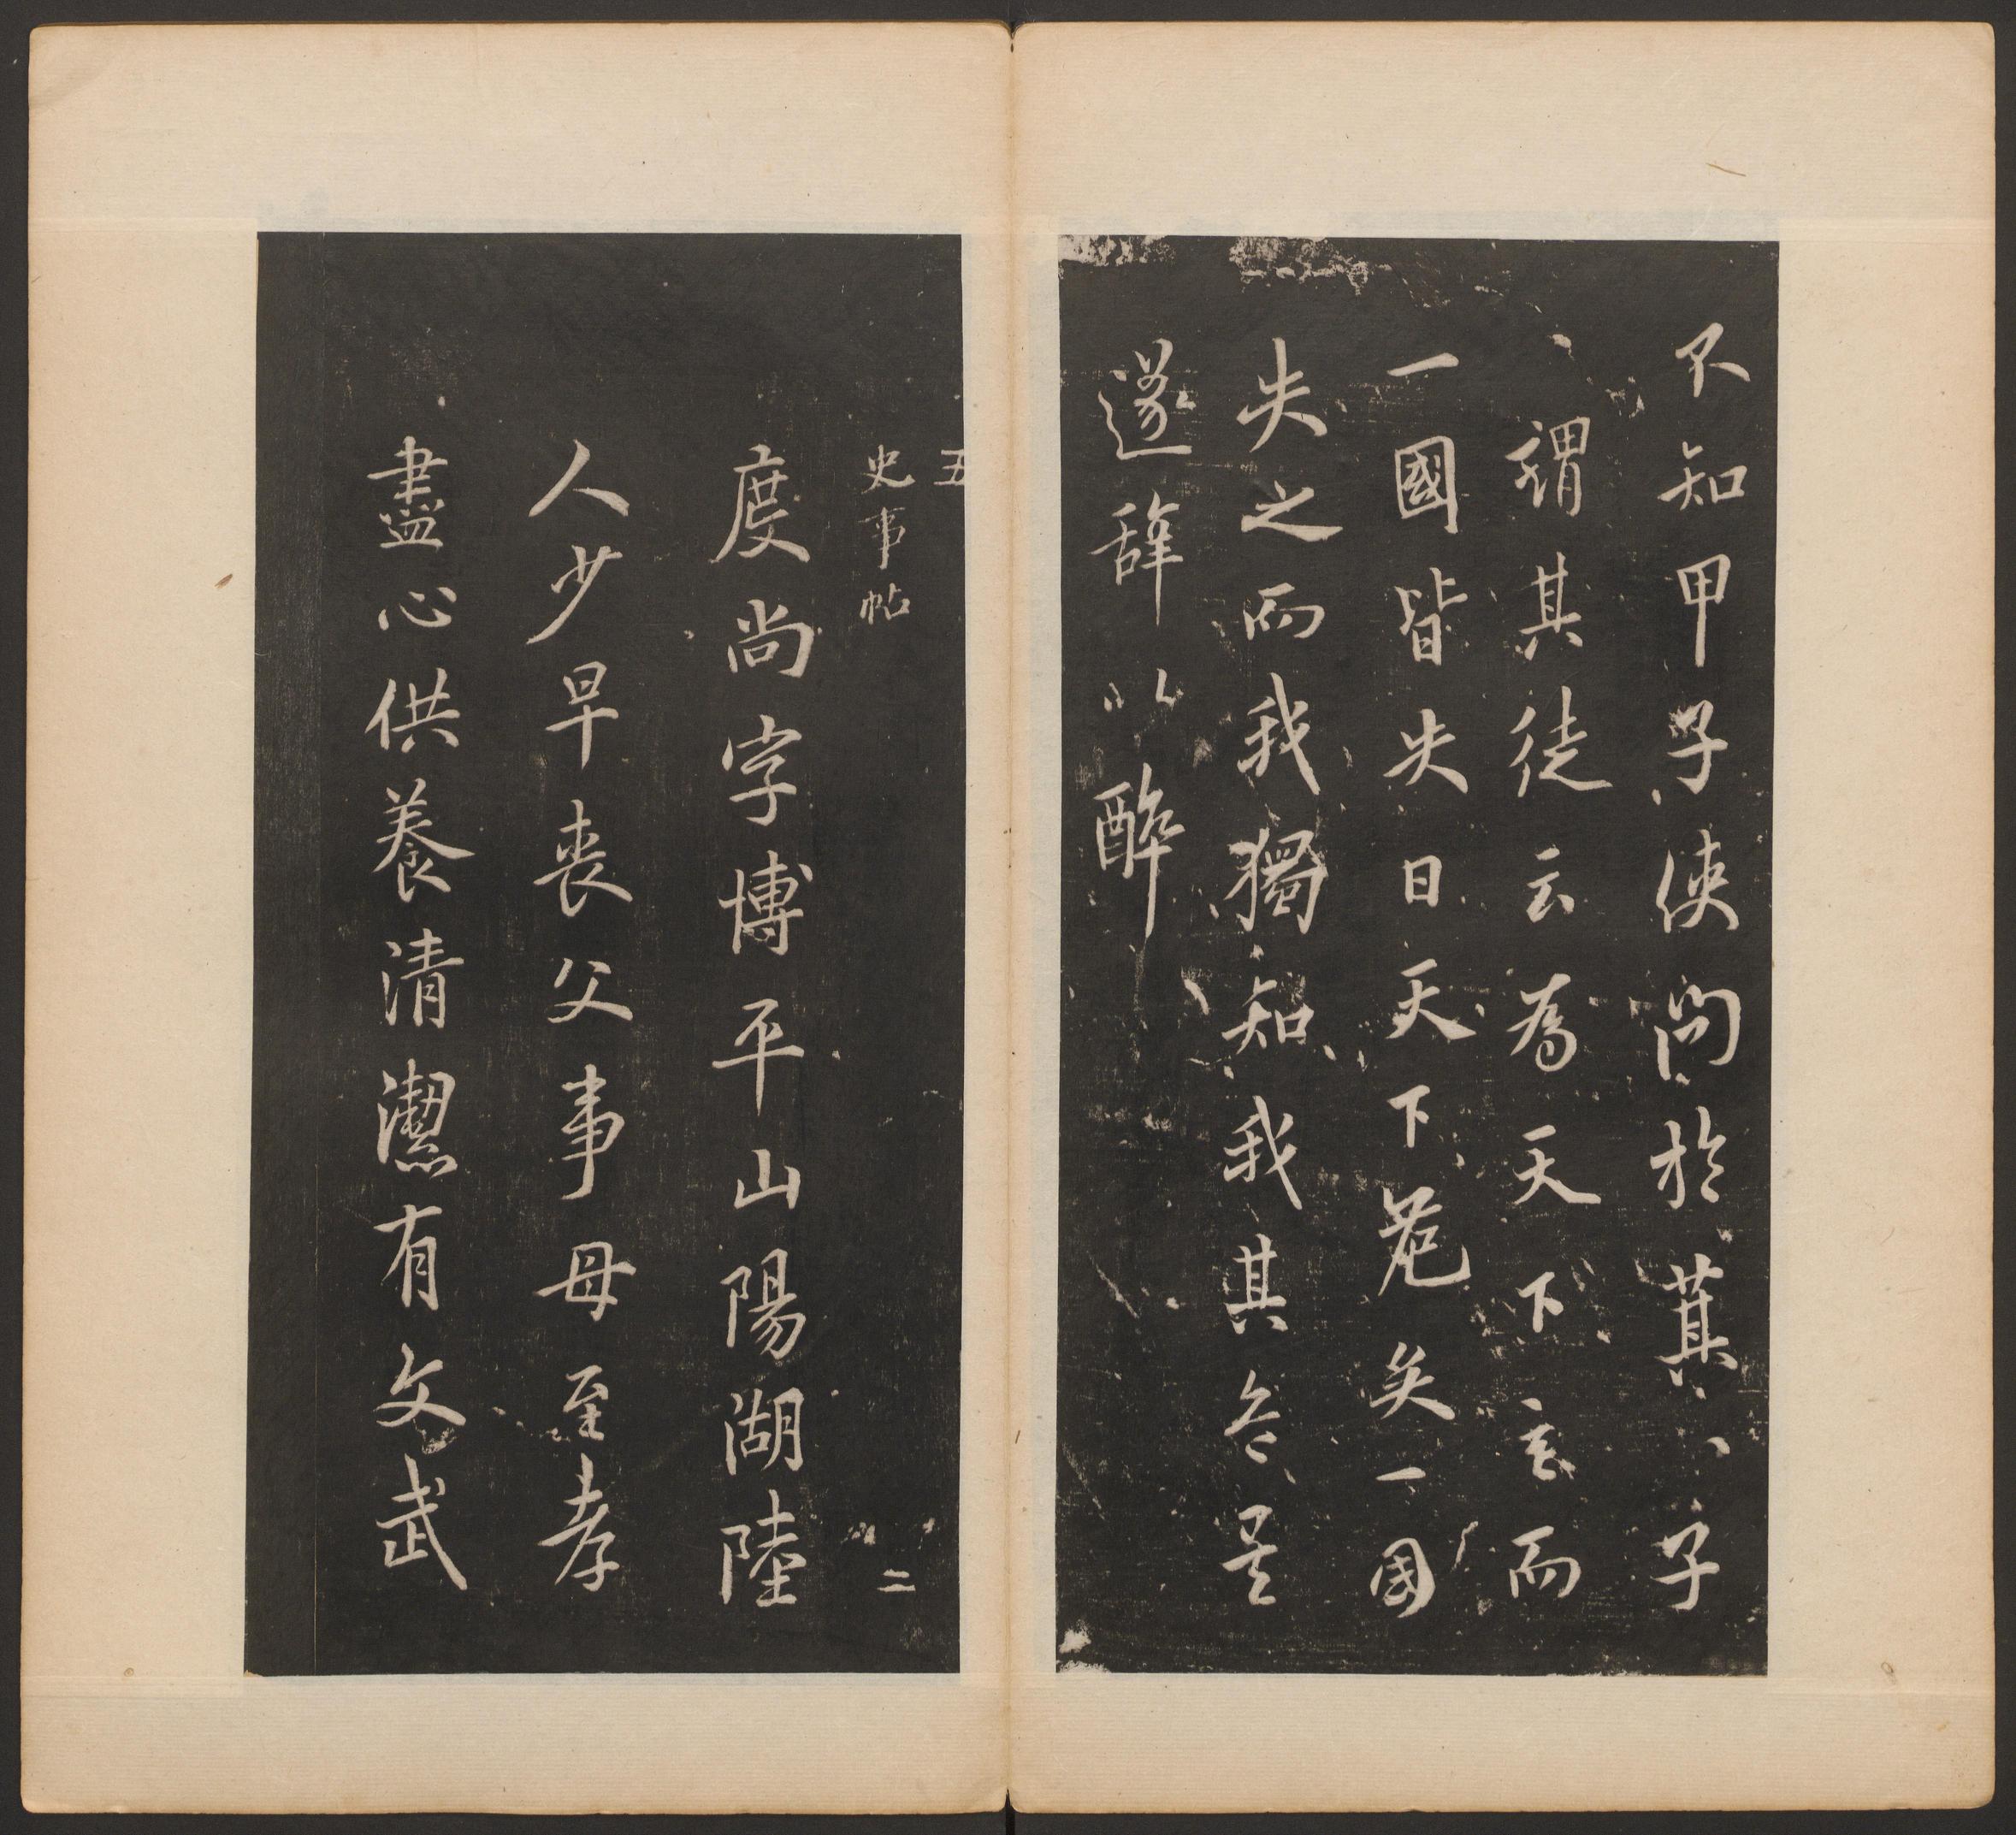 不知甲子使問於萁子
謂其徒云為天下主而
一國皆失日天下危矣一国
失之而我獨知我其危矣
遂辞以醉
五
史事帖
二
度尚字博平山陽湖陸
人少早喪父事母至孝
盡心供養清潔有文武